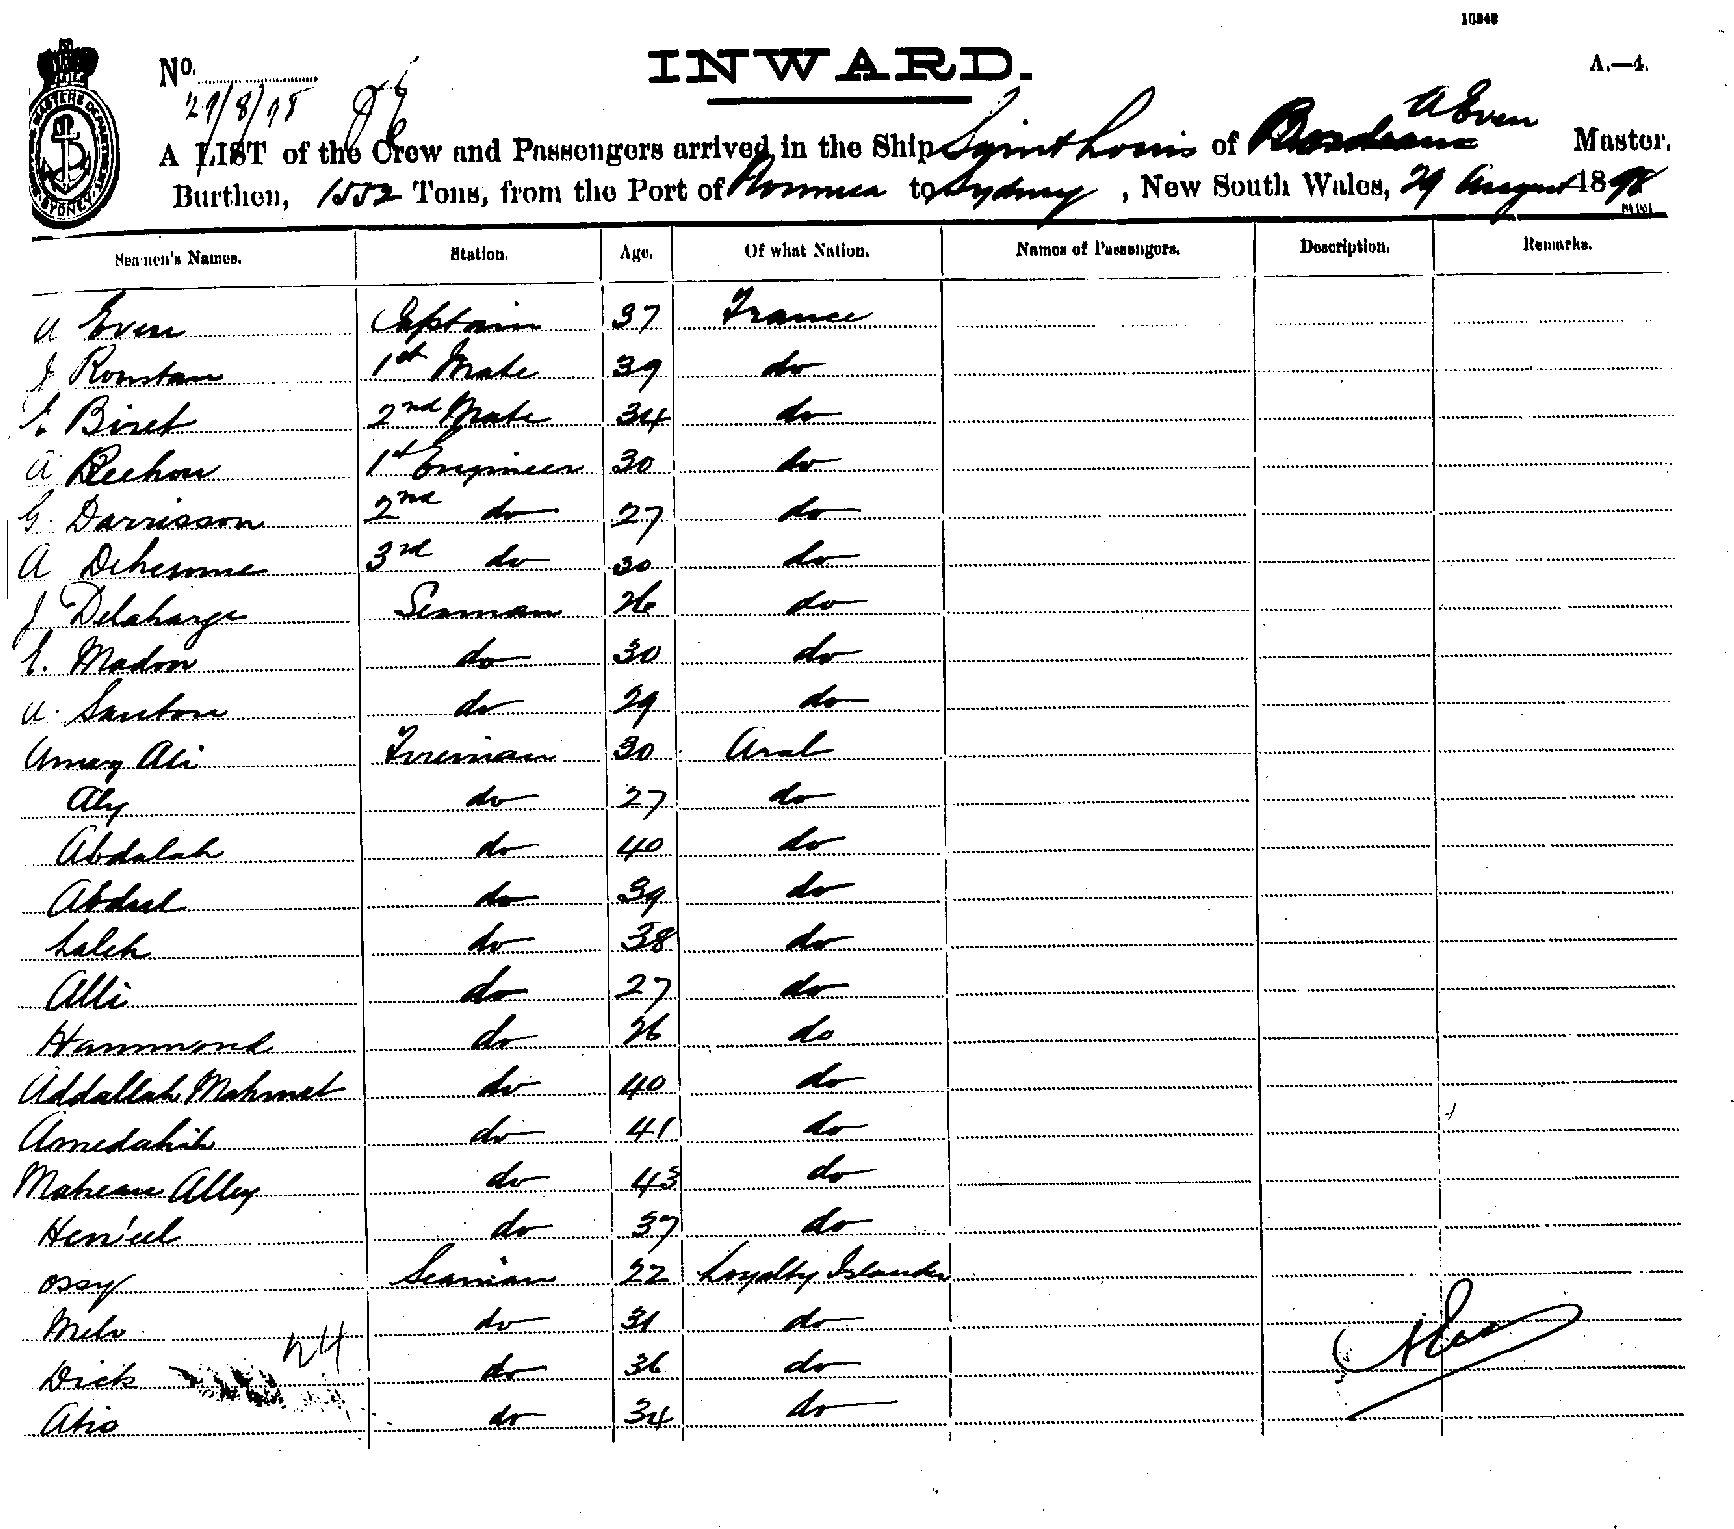 10848
INWARD.
A.—4.
No.
29/8/98
A LIST of the Crew and Passengers arrived in the Ship Saint Louis of Bordeaux A Even Master.
Burthen, 1552 Tons, from the Port of Noumea to Sydney, New South Wales, 29 August 1898
Seamen's Names. Station. Age. Of what Nation. Names of Passengers. Description. Remarks.
A Even Captain 37 France
J Roustan 1st Mate 39 do
Biret 2nd Mate 34 do
A 1st Engineer 30 do
G. Darrisson 2nd do 27 do
A 3rd do 30 do
J Delaharge Seaman 26 do
Madon do 30 do
A. Santon do 29 do
Amag Ali Fireman 30 Arab
Aly do 27 do
Abdalah do 40 do
Abdul do 39 do
Saleh do 38 do
Alli do 27 do
Hammond do 26 do
Addallah Mahmet do 40 do
Amedahih do 41 do
Alley do 43 do
do 37 do
Ossy Seaman 22 Loyalty Islander
Melo do 31 do
24
Dick do 36 do
Atio do 34 do
A Even